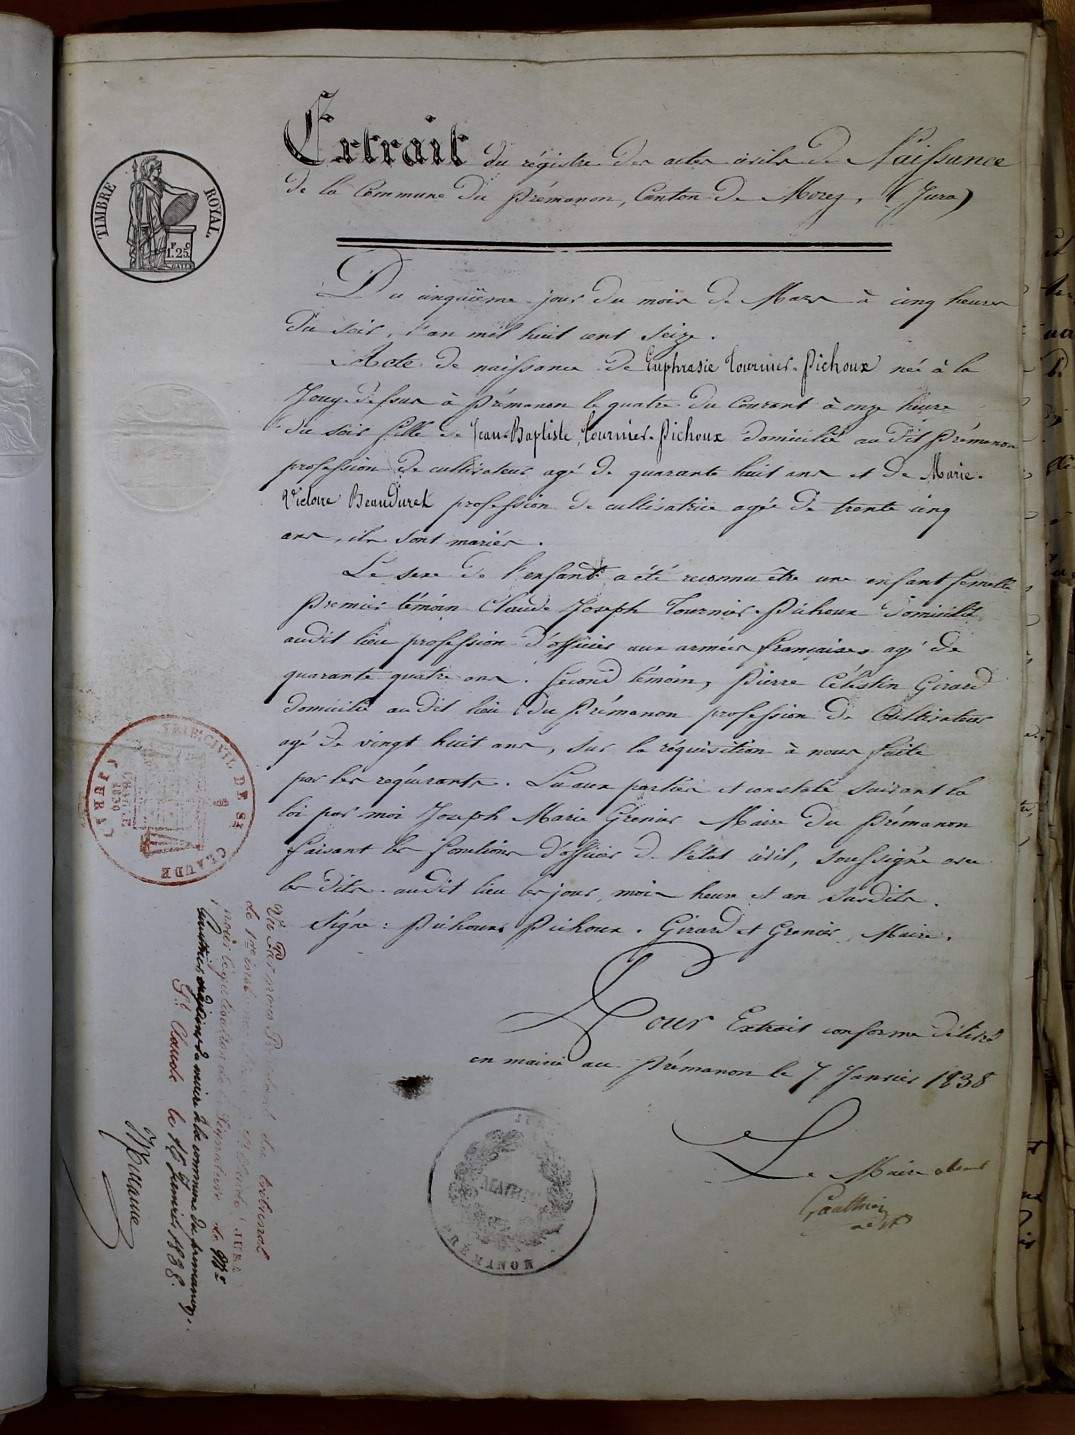 TIMBRE ROYAL.
1 F. 25 C.
Extrait du régistre des actes civils de Naissance
de la Commune du Prémanon, Canton de Morez, (Jura)
Du cinquième jour du mois de Mars à cinq heures
du soir, l'an mil huit cent seize.
Acte de naissance de Euphrasie Tournier-Pichoux née à la
Joug-dessus à Prémanon le quatre du Courant à onze heure
du soir fille de Jean-Baptiste Tournier-Pichoux domicilié au dit Prémanon
profession de cultivateur agé de quarante huit ans et de Marie-
Victoire Beauduret profession de cultivatrice agée de trente cinq
ans, ils sont mariés.
Le sexe de l'enfant a été reconnu être une enfant femelle
Premier témoin Claude Joseph Tournier-Pichoux domicilié
audit lieu profession d'officier aux armées françaises agé de
quarante quatre ans. Second témoin, Pierre Célestin Girard
domicilié au dit lieu du Prémanon profession de Cultivateur
agé de vingt huit ans, sur la réquisition à nous faite
par les requérants. Lu aux parties et constaté suivant la
loi par moi Joseph Marie Grenier Maire du Prémanon
faisant les fonctions d'officier de l'état civil, soussigné avec
les dits audit lieu les jour, mois heure et an susdits.
Signé: Pichoux Pichoux. Girard et Grenier, Maire.
Pour Extrait conforme délivré
en mairie au Prémanon le 7 Janvier 1838
Le Maire
MAIRIE
PRÉMONT
TRIB. CIVIL DE ST CLAUDE (JURA)
1830
Vu Par nous Président du tribunal
de 1re inst. St Claude (JURA)
pour légalisation de la Signature de Mr
maire de la commune du prémanon,
St Claude le 15 Janvier 1838.